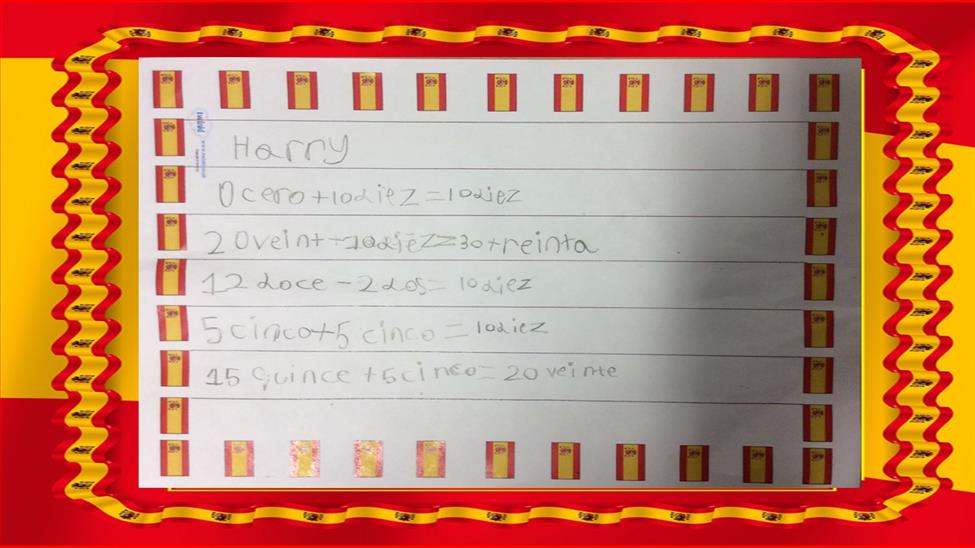 Harry
0 cero + 10 diez = 10 diez
20 veint + 10 diez = 30 treinta
12 doce - 2 dos = 10 diez
5 cinco + 5 cinco = 10 diez
15 quince + 5 cinco = 20 veinte